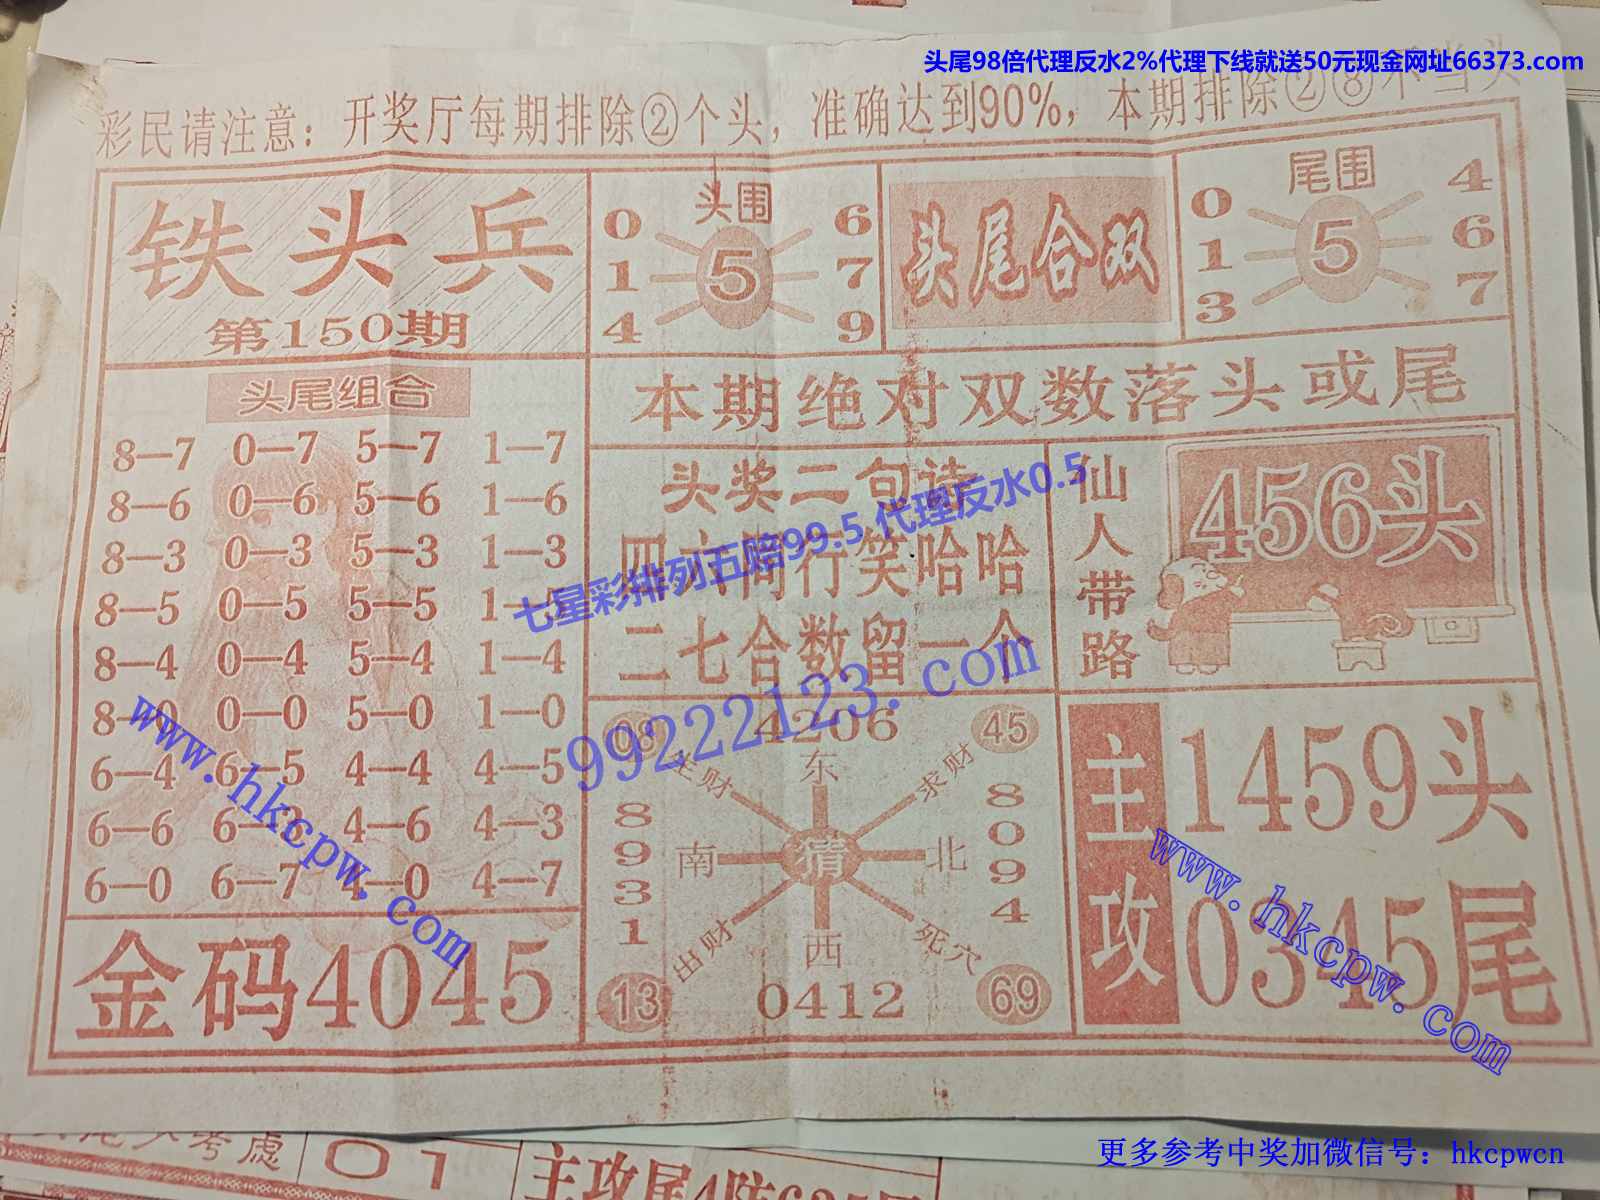 头尾98倍代理反水2%代理下线就送50元现金网址66373.com
彩民请注意：开奖厅每期排除②个头，准确达到90%，本期排除②⑧不当头
铁头兵
第150期
头围
0 6
1 5 7
4 9
头尾合双
尾围
0 4
1 5 6
3 7
本期绝对双数落头或尾
头尾组合
8—7 0—7 5—7 1—7
8—6 0—6 5—6 1—6
8—3 0—3 5—3 1—3
8—5 0—5 5—5 1—5
8—4 0—4 5—4 1—4
8—0 0—0 5—0 1—0
6—4 6—5 4—4 4—5
6—6 6—3 4—6 4—3
6—0 6—7 4—0 4—7
金码4045
头奖二句诗
四六同行笑哈哈
二七合数留一个
七星彩排列五赔99.5 代理反水0.5
99222123.com
仙人带路
456头
08 4206 45
主财 东 求财
8931 南 猜 北 8094
出财 西 死穴
13 0412 69
主攻
1459头
0345尾
www.hkcpw.com
www.hkcpw.com
考虑
01
主攻尾4防635
更多参考中奖加微信号：hkcpwcn